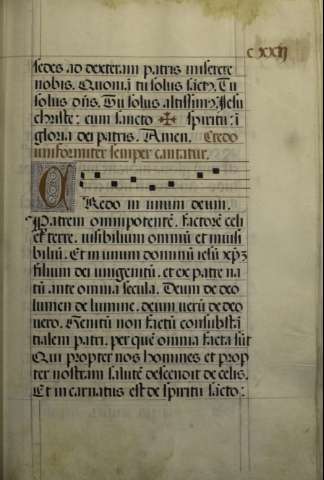 c xxij
sedes ad dexteram patris miserere
nobis. Quoniā tu solus sāctꝰ. Tu
solus dn̄s. Tu solus altissimꝰ Jesu
christe: cum sancto ✠ spiritu: ī
gloria dei patris. Amen. Credo
uniformiter semper cantatur.
CRedo in unum deum.
Patrem omnipotentē. factorē celi
et terre. uisibilium omniū et inuisi
biliū. Et in unum dominū iesū xp̄m
filium dei unigenitū. et ex patre na
tū ante omnia secula. Deum de deo
lumen de lumine. deum uerū de deo
uero. Genitū non factū consubstā
tialem patri. per quē omnia facta sūt
Qui propter nos homines et prop
ter nostram salutē descendit de celis.
Et incarnatus est de spiritu sācto: